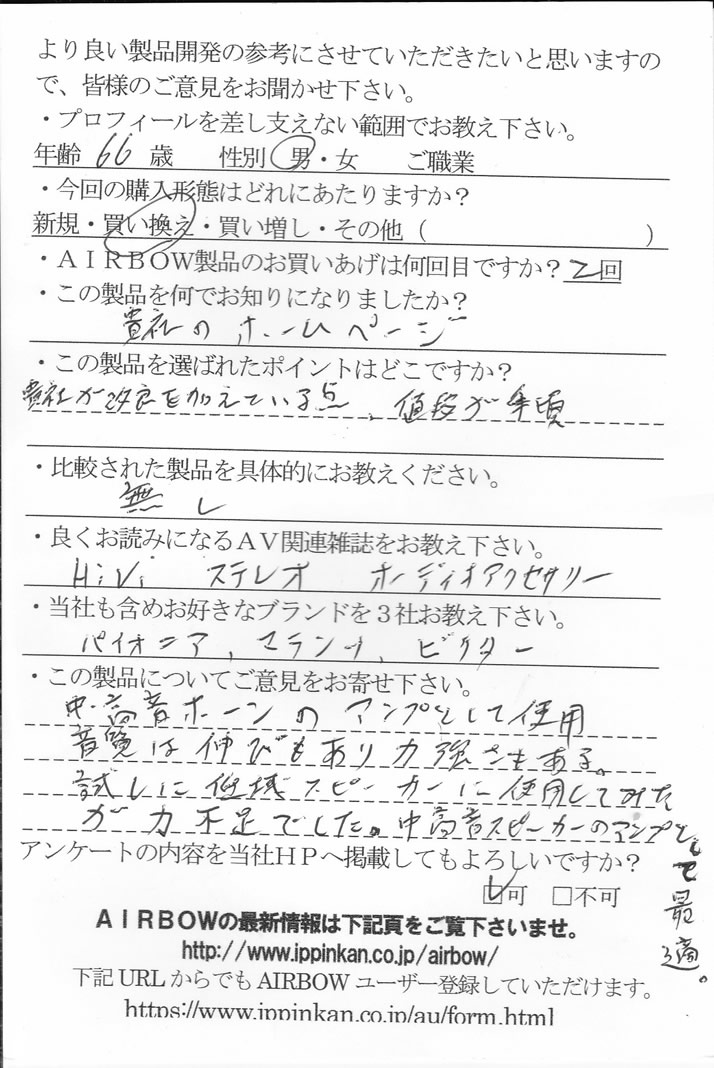 より良い製品開発の参考にさせていただきたいと思いますの
で、皆様のご意見をお聞かせ下さい。
・プロフィールを差し支えない範囲でお教え下さい。
年齢 66 歳 性別 男・女 ご職業
・今回の購入形態はどれにあたりますか？
新規・買い換え・買い増し・その他（ ）
・ＡＩＲＢＯＷ製品のお買いあげは何回目ですか？ 2回
・この製品を何でお知りになりましたか？
貴社のホームページ
・この製品を選ばれたポイントはどこですか？
貴社が改良を加えている点、値段が手頃
・比較された製品を具体的にお教えください。
無し
・良くお読みになるＡＶ関連雑誌をお教え下さい。
HiVi ステレオ オーディオアクセサリー
・当社も含めお好きなブランドを３社お教え下さい。
パイオニア、マランツ、ビクター
・この製品についてご意見をお寄せ下さい。
中・高音ホーンのアンプとして使用
音質は伸びもあり力強さもある。
試しに低域スピーカーに使用してみた
が力不足でした。中高音スピーカーのアンプとして最適。
アンケートの内容を当社ＨＰへ掲載してもよろしいですか？
☑可 □不可
ＡＩＲＢＯＷの最新情報は下記頁をご覧下さいませ。
http://www.ippinkan.co.jp/airbow/
下記 URL からでも AIRBOW ユーザー登録していただけます。
https://www.ippinkan.co.jp/au/form.html